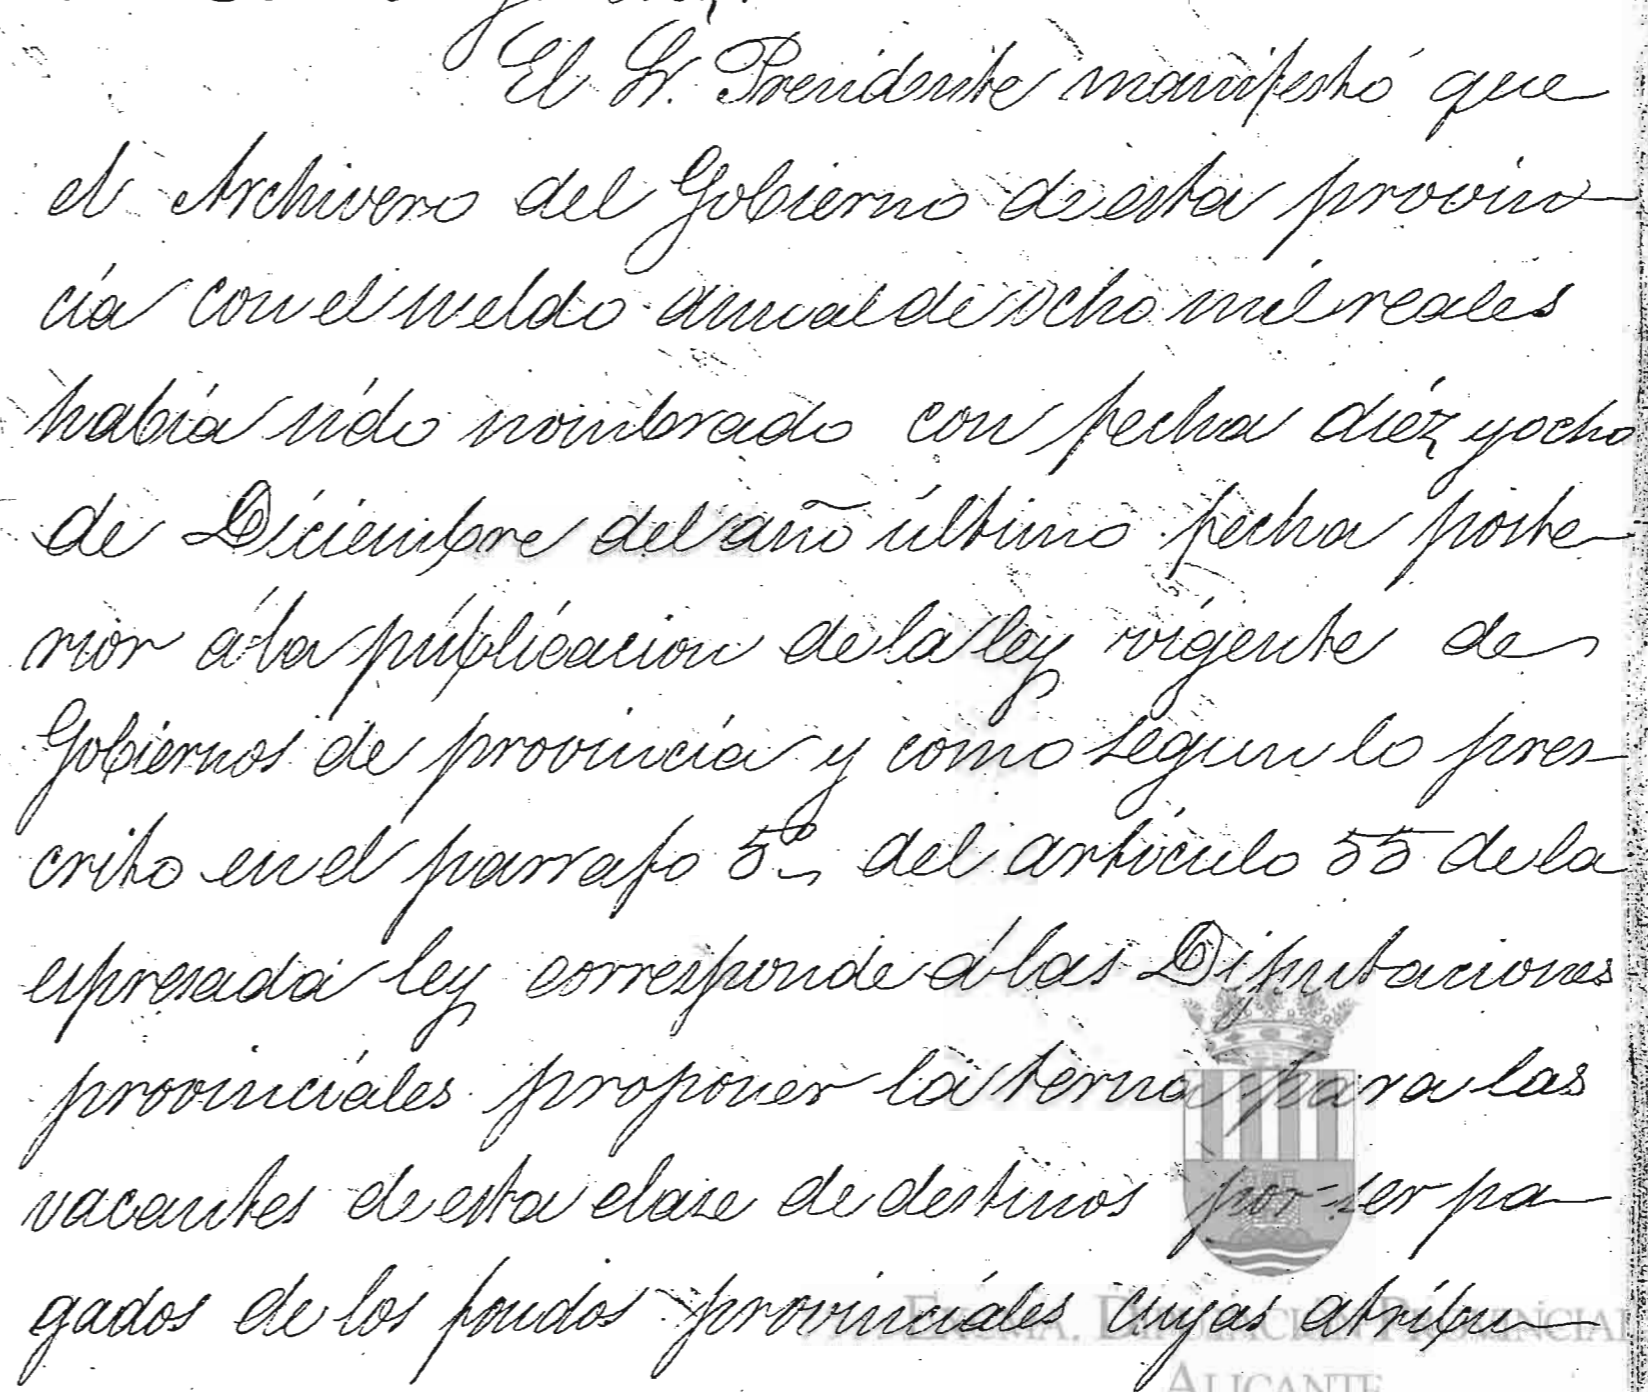 El Sr. Presidente manifestó que
el Archivero del Gobierno de esta provin-
cia con el sueldo anual de ocho mil reales
había sido nombrado con fecha diéz y ocho
de Diciembre del año último fecha poste-
rior á la publicacion de la ley vigente de
Gobiernos de provincia y como segun lo pres-
crito en el parrafo 5º del artículo 55 de la
espresada ley corresponde á las Diputaciones
provinciales proponer la terna para las
vacantes de esta clase de destinos por ser pa-
gados de los fondos provinciales cuyas atribu-
EXCMA. DIPUTACIÓN PROVINCIAL
ALICANTE